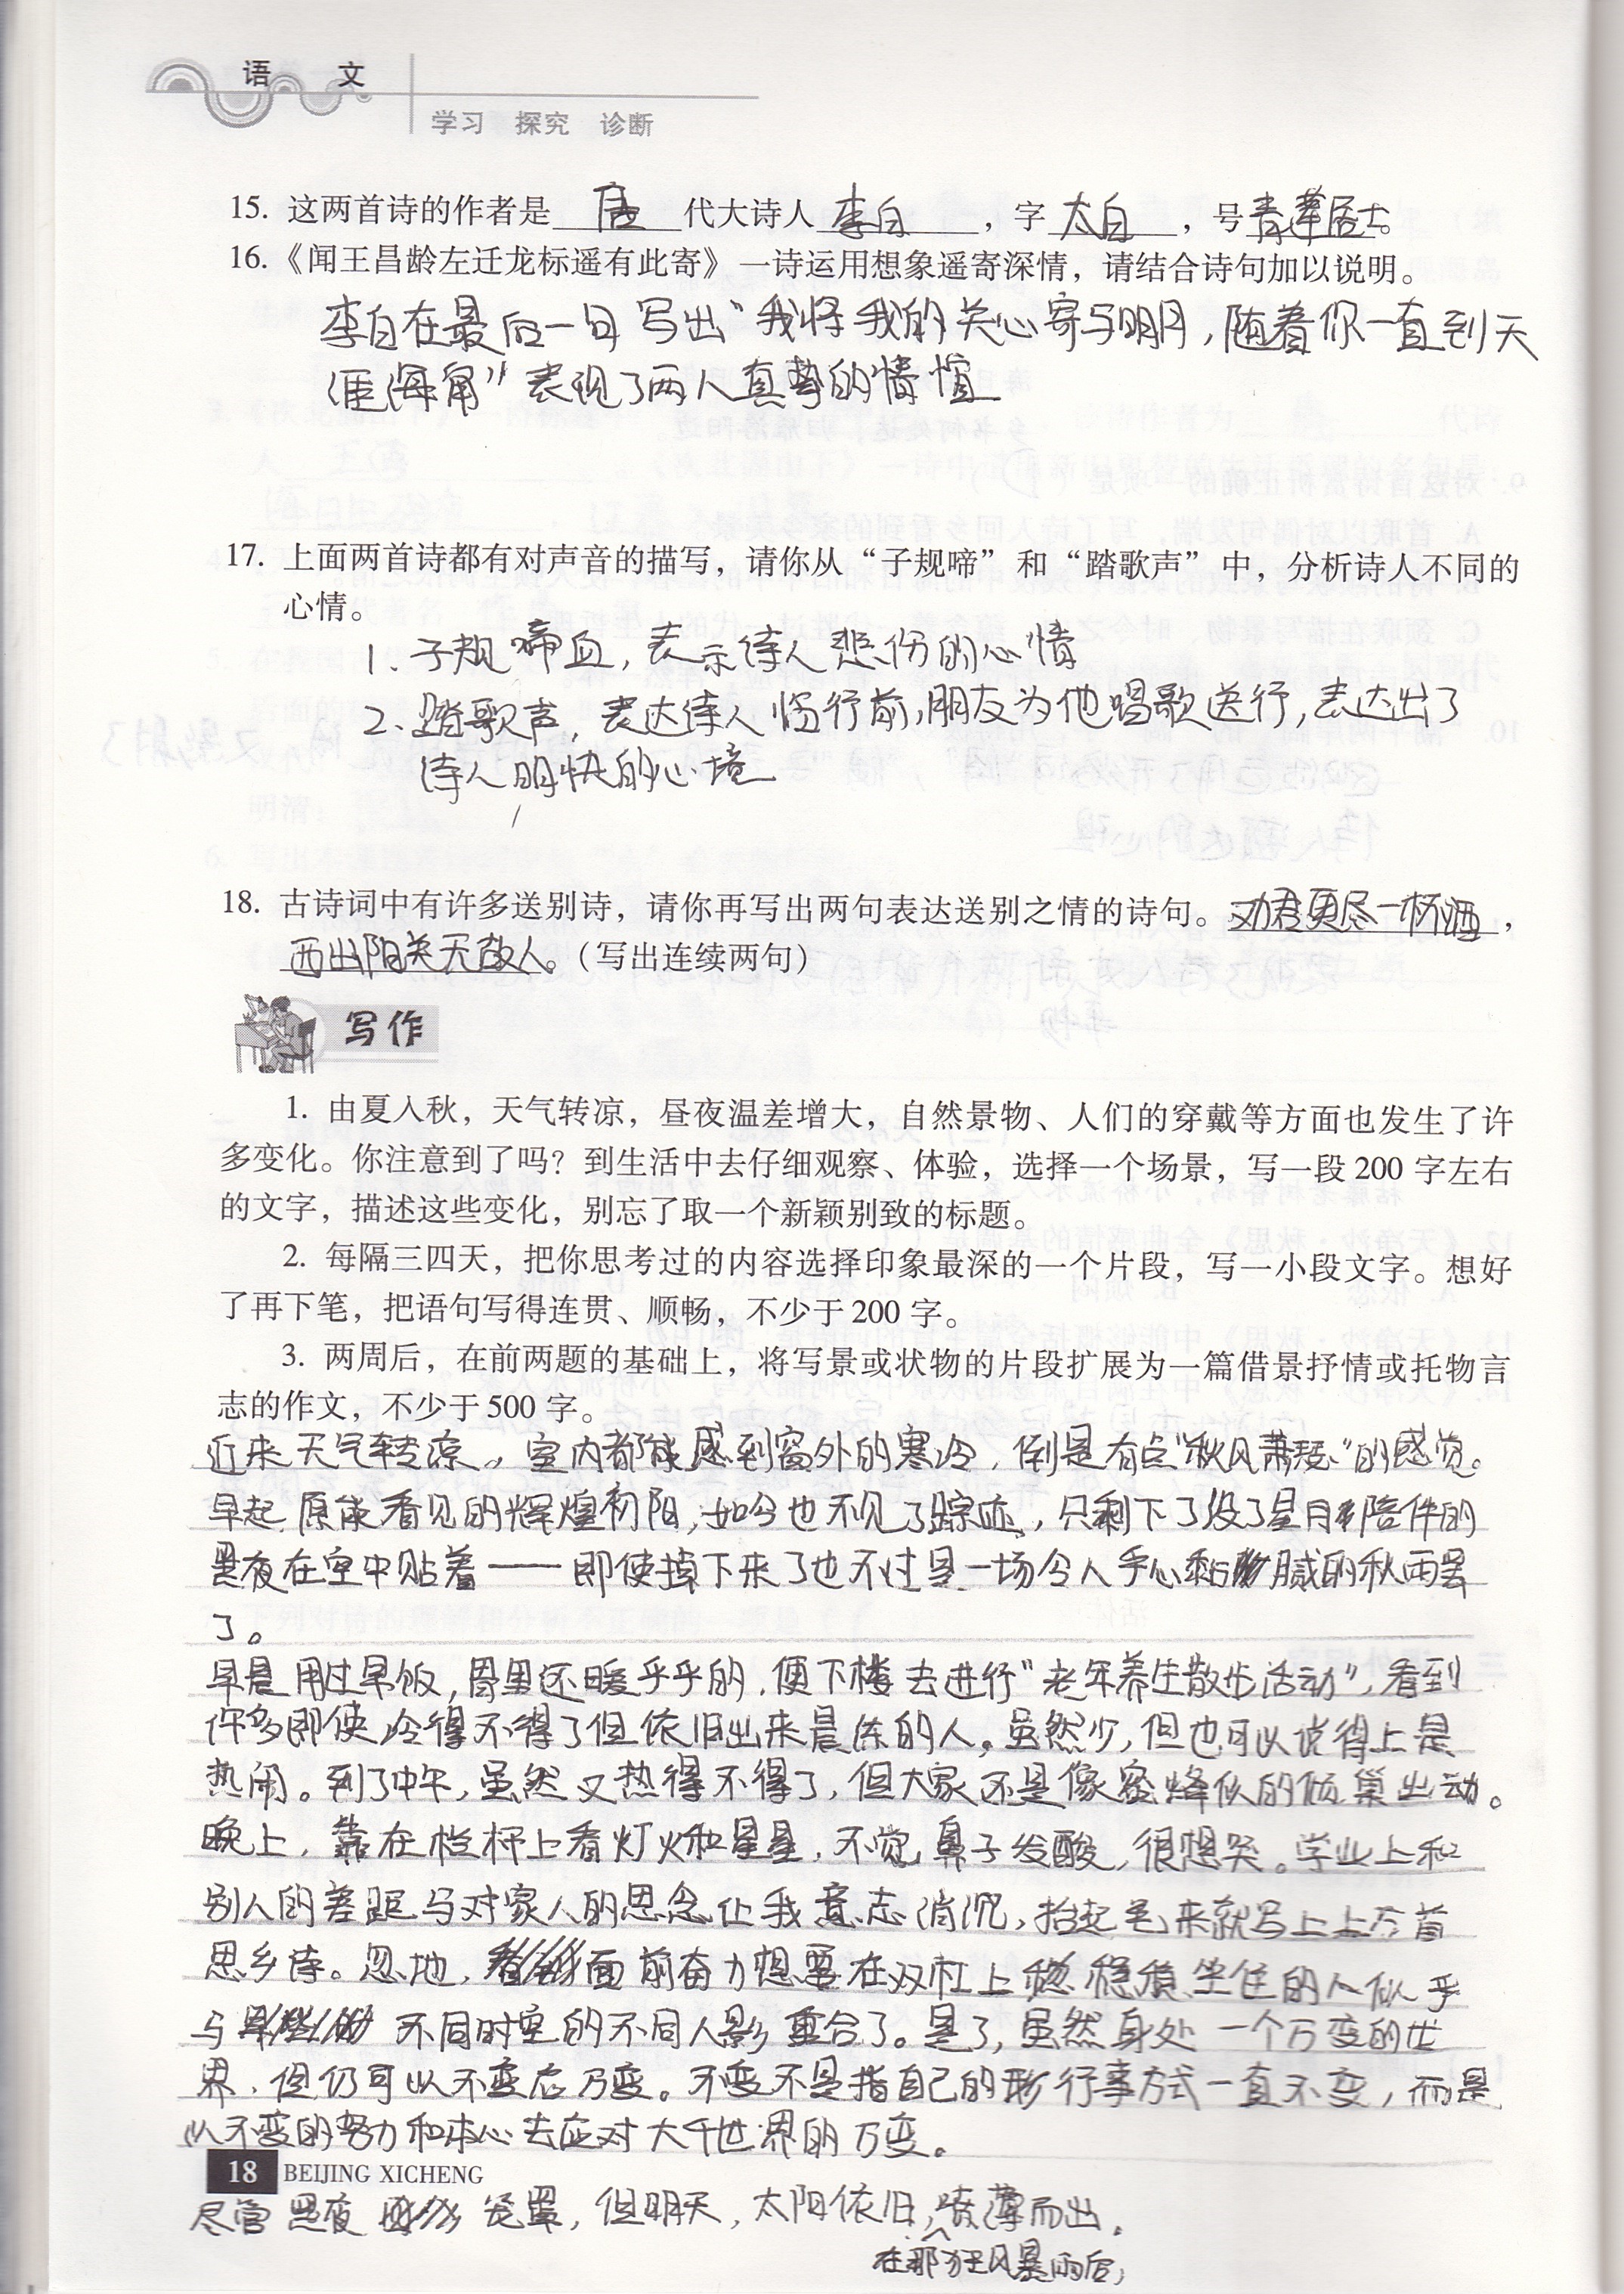 语 文
学习 探究 诊断
15. 这两首诗的作者是 唐 代大诗人 李白 ，字 太白 ，号青莲居士。
16.《闻王昌龄左迁龙标遥有此寄》一诗运用想象遥寄深情，请结合诗句加以说明。
李白在最后一句写出“我将我的关心寄与明月，随着你一直到天
涯海角”表现了两人真挚的情谊
17. 上面两首诗都有对声音的描写，请你从“子规啼”和“踏歌声”中，分析诗人不同的
心情。
1. 子规啼血，表示诗人悲伤的心情
2、踏歌声，表达诗人临行前，朋友为他唱歌送行，表达出了
诗人明快的心境
18. 古诗词中有许多送别诗，请你再写出两句表达送别之情的诗句。劝君更尽一杯酒，
西出阳关无故人。（写出连续两句）
写作
1. 由夏入秋，天气转凉，昼夜温差增大，自然景物、人们的穿戴等方面也发生了许
多变化。你注意到了吗？到生活中去仔细观察、体验，选择一个场景，写一段 200 字左右
的文字，描述这些变化，别忘了取一个新颖别致的标题。
2. 每隔三四天，把你思考过的内容选择印象最深的一个片段，写一小段文字。想好
了再下笔，把语句写得连贯、顺畅，不少于 200 字。
3. 两周后，在前两题的基础上，将写景或状物的片段扩展为一篇借景抒情或托物言
志的作文，不少于 500 字。
近来天气转凉，室内都能感到窗外的寒冷，倒是有点“秋风萧瑟”的感觉。
早起原能看见的辉煌初阳，如今也不见了踪迹，只剩下了没了星月陪伴的
黑夜在空中贴着——即使掉下来了也不过是一场令人手心黏腻的秋雨罢
了。
早晨用过早饭，胃里还暖乎乎的，便下楼去进行“老年养生散步活动”，看到
许多即使冷得不得了但依旧出来晨练的人。虽然少，但也可以说得上是
热闹。到了中午，虽然又热得不得了，但大家还是像蜜蜂似的倾巢出动。
晚上，靠在栏杆上看灯火和星星，不觉鼻子发酸，很想哭。学业上和
别人的差距与对家人的思念让我意志消沉，抬起笔来就写上上百首
思乡诗。忽地，面前奋力想要在双杠上稳稳坐住的人似乎
与 不同时空的不同人影重合了。是了，虽然身处一个万变的世
界，但仍可以不变应万变。不变不是指自己的行事方式一直不变，而是
以不变的努力和本心去应对大千世界的万变。
18 BEIJING XICHENG
尽管黑夜 笼罩，但明天，太阳依旧，喷薄而出。
在那狂风暴雨后，